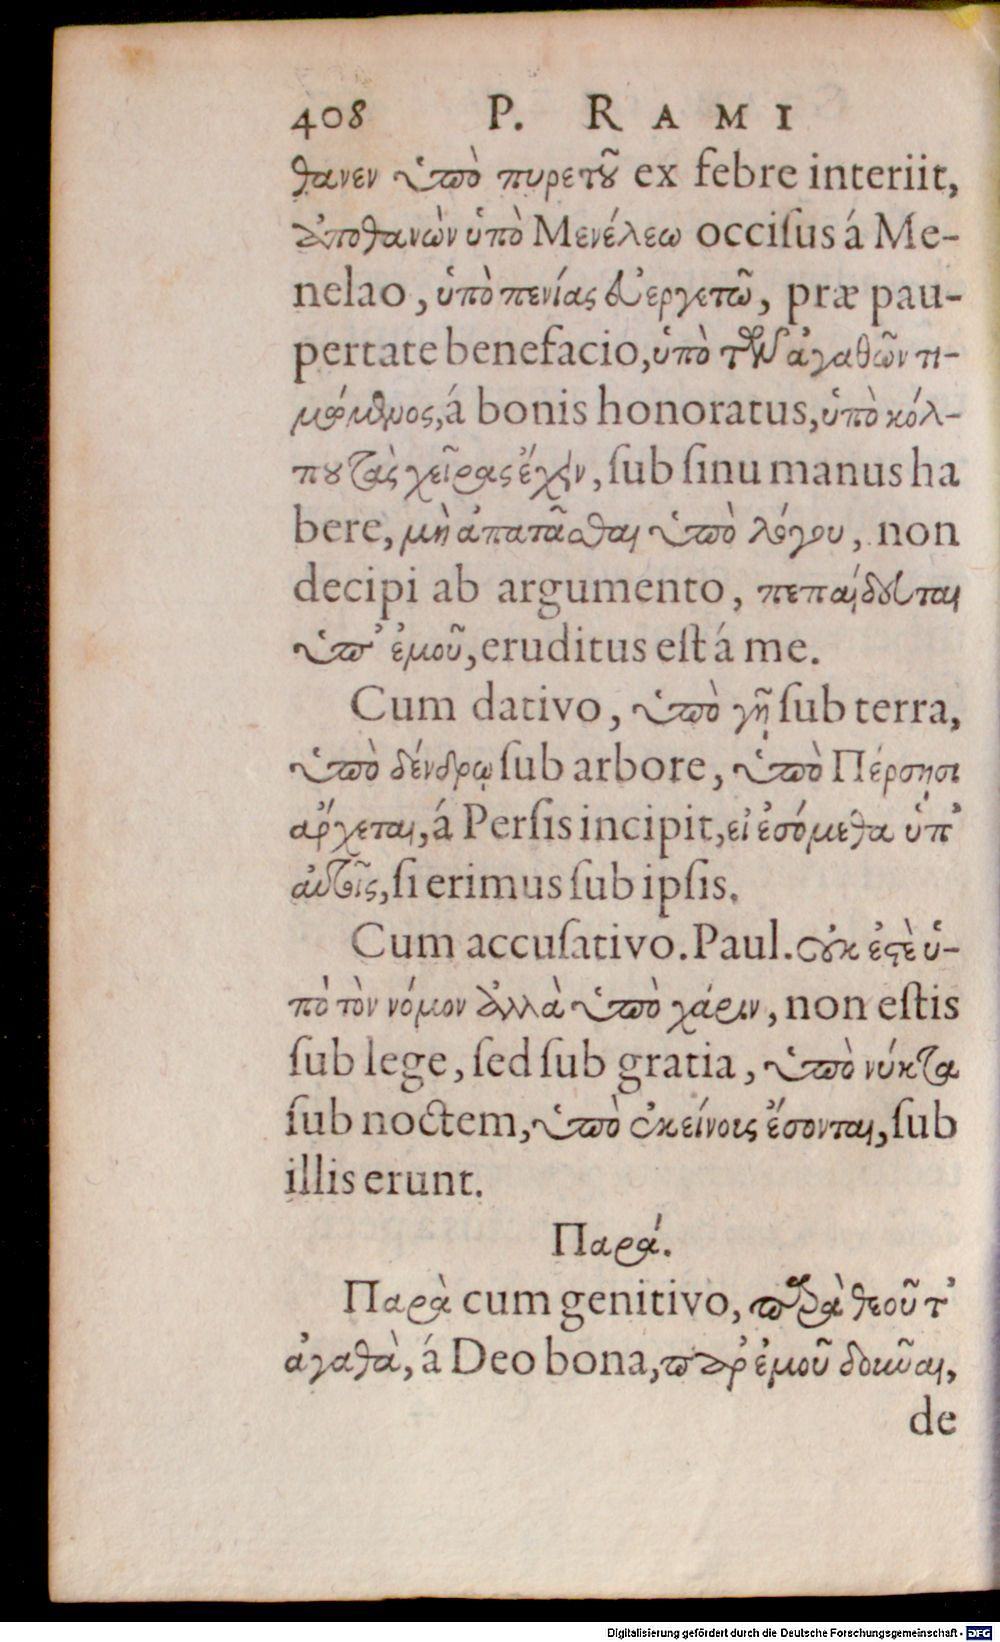 408 P. RAMI
θανεν ὑπὸ πυρετοῦ ex febre interiit,
ἀποθανὼν ὑπὸ Μενέλεω occiſus á Me-
nelao, ὑπὸ πενίας εὐεργετῶ, præ pau-
pertate benefacio, ὑπὸ τῶν ἀγαθῶν τι-
μώμενος, á bonis honoratus, ὑπὸ κόλ-
που τὰς χεῖρας ἔχειν, ſub ſinu manus ha
bere, μὴ ἀπατᾶσθαι ὑπὸ λόγου, non
decipi ab argumento, πεπαίδευται
ὑπ' ἐμοῦ, eruditus eſt á me.
Cum dativo, ὑπὸ γῇ ſub terra,
ὑπὸ δένδρῳ ſub arbore, ὑπὸ Πέρσῃσι
ἄρχεται, á Perſis incipit, εἰ ἐσόμεθα ὑπ'
αὐτοῖς, ſi erimus ſub ipſis.
Cum accuſativo. Paul. οὐκ ἐστὲ ὑ-
πὸ τὸν νόμον ἀλλὰ ὑπὸ χάριν, non eſtis
ſub lege, ſed ſub gratia, ὑπὸ νύκτα
ſub noctem, ὑπὸ ἐκείνοις ἔσονται, ſub
illis erunt.
Παρά.
Παρὰ cum genitivo, παρὰ θεοῦ τ'
ἀγαθὰ, á Deo bona, παρ' ἐμοῦ δοκεῖναι,
de
Digitalisierung gefördert durch die Deutsche Forschungsgemeinschaft - DFG